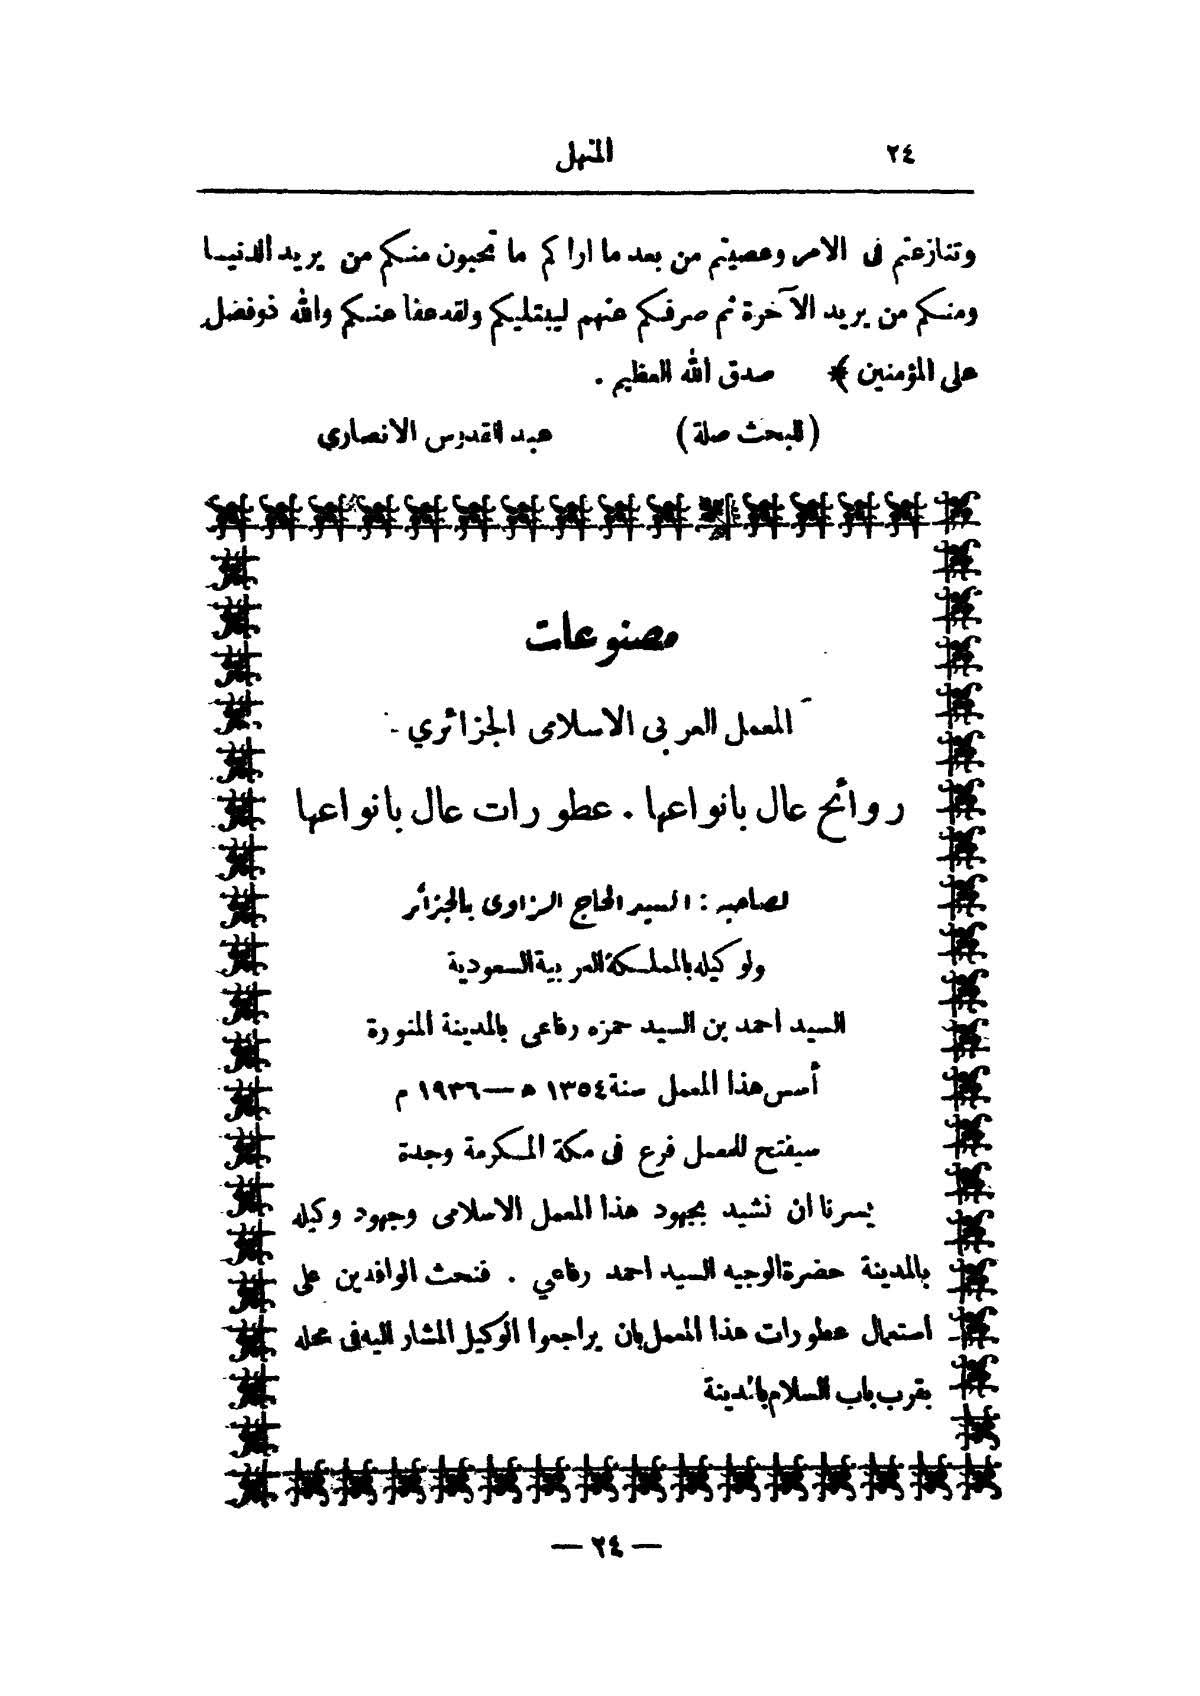 ٢٤ المنهل
وتنازعتم فى الامر وعصيتم من بعد ما اراكم ما تحبون منكم من يريد الدنيا
ومنكم من يريد الآخرة ثم صرفكم عنهم ليبتليكم ولقد عفا عنكم والله ذوفضل
على المؤمنين ﴾ صدق الله العظيم .
(للبحث صلة) عبد القدوس الانصاري
مصنوعات
المعمل العربى الاسلامى الجزائري
روائح عال بانواعها . عطورات عال بانواعها
لصاحبه : السيد الحاج الزاوى بالجزائر
ولوكيله بالمملكة العربية السعودية
السيد احمد بن السيد حمزه رفاعى بالمدينة المنورة
أسس هذا المعمل سنة ١٣٥٤ ه — ١٩٣٦ م
سيفتح للمعمل فرع فى مكة المكرمة وجدة
يسرنا ان نشيد بجهود هذا المعمل الاسلامى وجهود وكيله
بالمدينة حضرة الوجيه السيد احمد رفاعي . فنحث الوافدين على
استعمال عطورات هذا المعمل بان يراجعوا الوكيل المشار اليه فى محله
بقرب باب السلام بالمدينة
— ٢٤ —